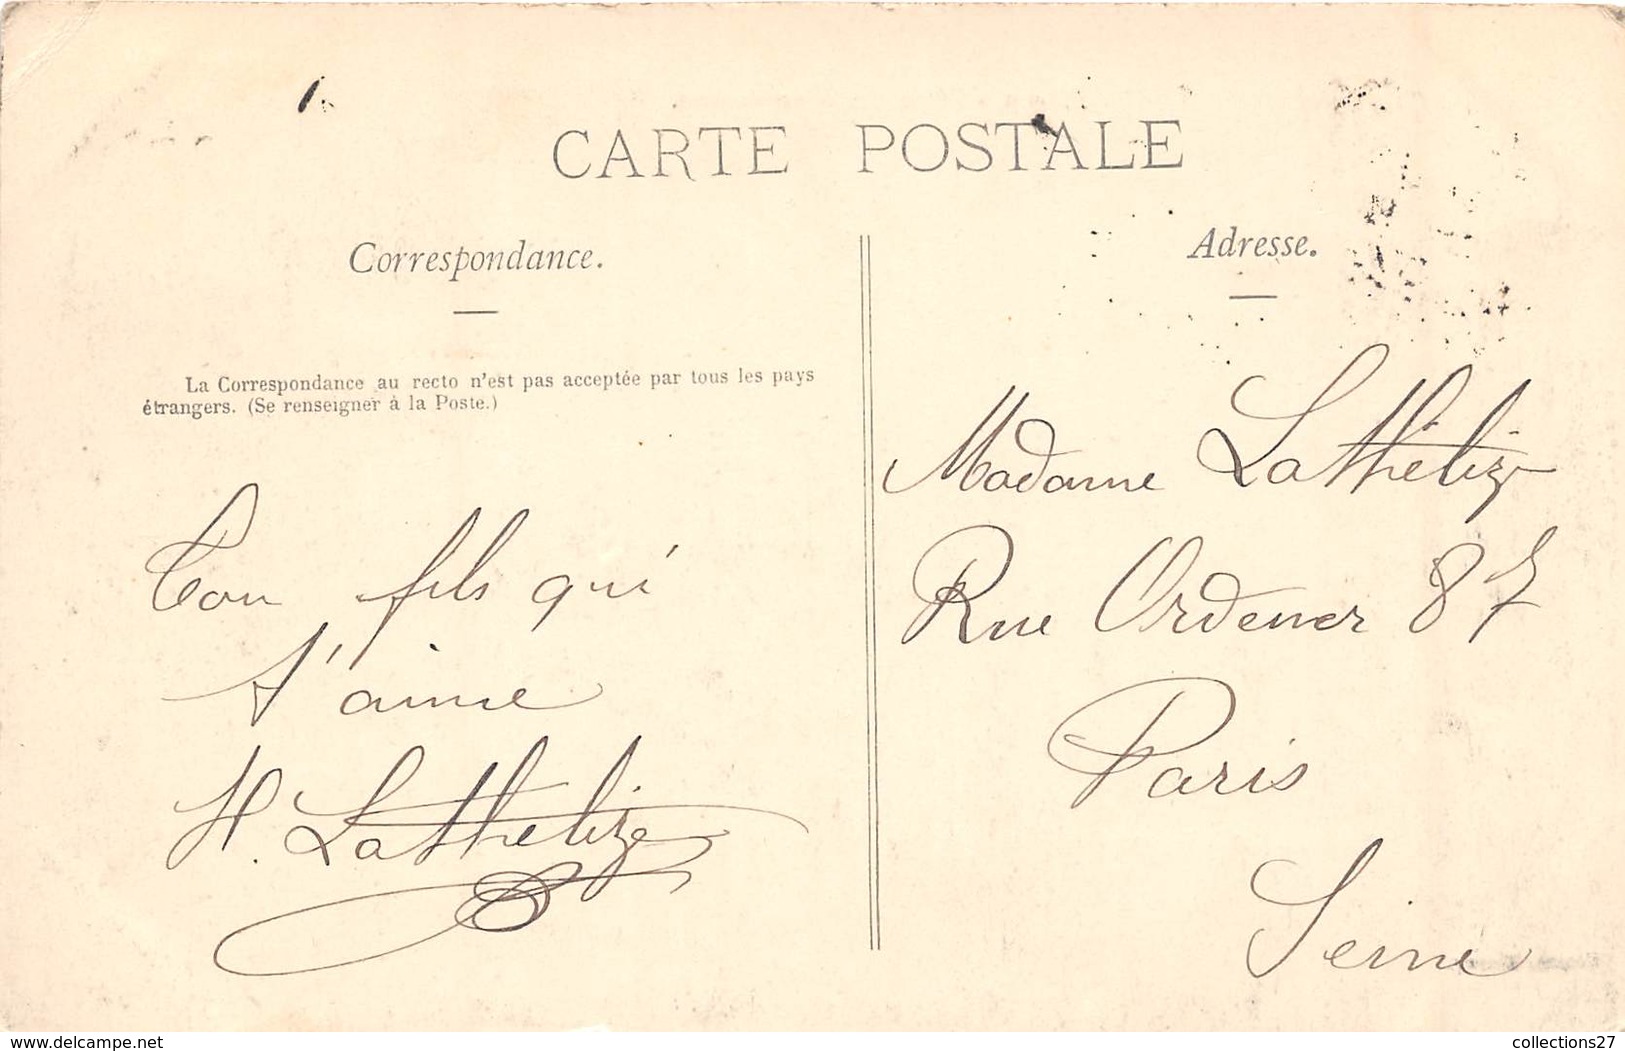 CARTE POSTALE
Correspondance.
La Correspondance au recto n'est pas acceptée par tous les pays
étrangers. (Se renseigner à la Poste.)
Ton fils qui
t'aime
H. Lathelize
Adresse.
Madame Lathélize
Rue Ordener 87
Paris
Seine
www.delcampe.net
collections27